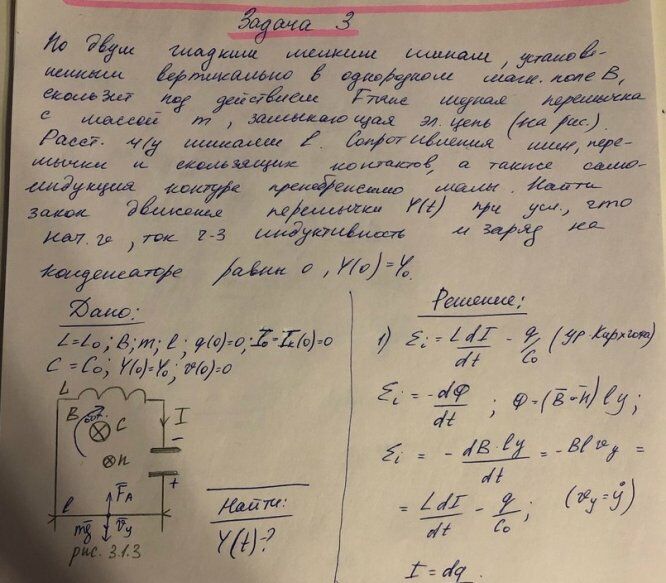 Задача 3
По двум гладким медным шинам, установле-
ненным вертикально в однородном магн. поле B,
скользит под действием Fтяж медная перемычка
с массой m, замыкающая эл. цепь (на рис.).
Расст. м/у шинами l. Сопротивления шин, пере-
мычки и скользящих контактов, а также само-
индукция контура пренебрежимо малы. Найти
закон движения перемычки Y(t) при усл., что
нач. v, ток ч-з индуктивность и заряд на
конденсаторе равны 0, Y(0)=Y₀
Дано:
L=L₀; B; m; l; q(0)=0; I₀=I_L(0)=0
C=C₀; Y(0)=Y₀; v(0)=0
L
B
C
I
-
n
+
l
F̄_A
mḡ
v̄_y
рис. 3.1.3
Найти:
Y(t)-?
Решение:
1) Ɛi = LdI/dt - q/C₀ (ур. Кирхгофа)
Ɛi = -dФ/dt ; Ф=(B̄·n̄)ly;
Ɛi = -dB·ly/dt = -Blv_y =
= LdI/dt - q/C₀ ; (v_y=ẏ)
I = dq